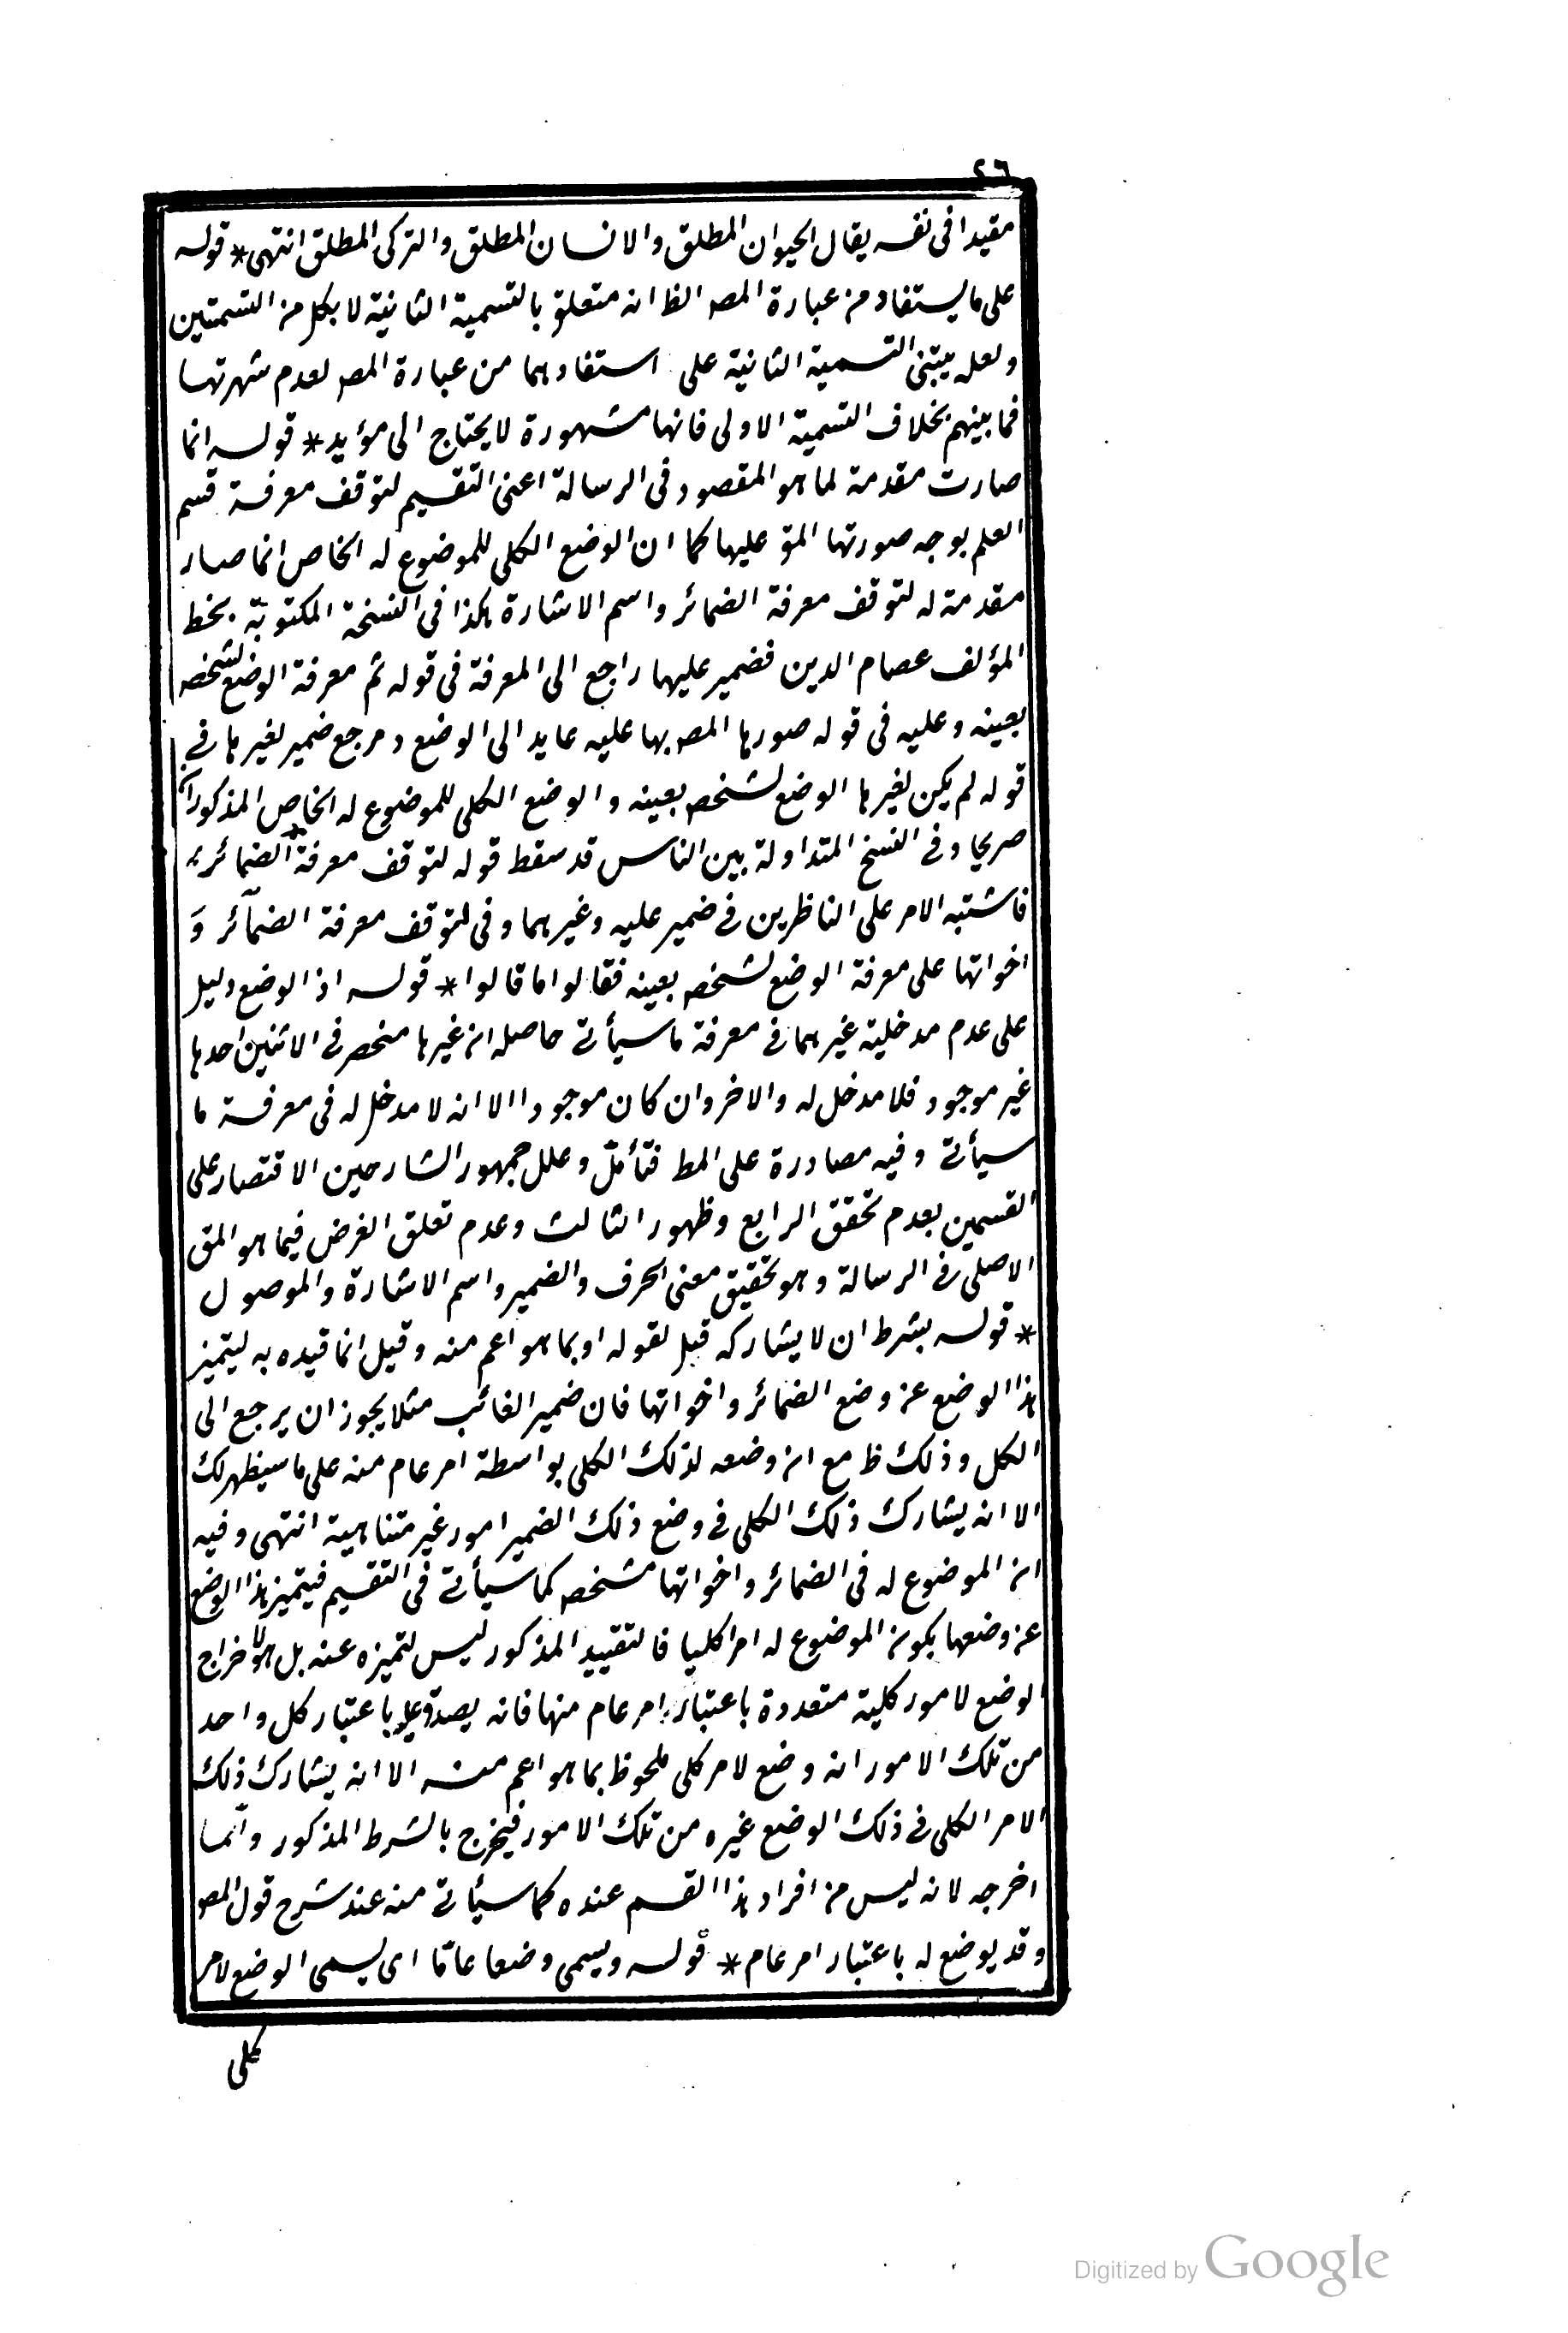 ٢٦
مقيدا فى نفسه يقال الحيوان المطلق والانسان المطلق والتركى المطلق انتهى * قوله
على ما يستفاد من عبارة المصـ الظ انه متعلق بالتسمية الثانية لا بكل من التسمتين
ولعله يبتنى التسمية الثانية على استفادهما من عبارة المصـ لعدم شهرتها
فما بينهم بخلاف التسمية الاولى فانها مشهورة لا يحتاج الى مؤيد * قوله انما
صارت مقدمة لما هو المقصود فى الرسالة اعنى التقسيم لتوقف معرفة قسم
العلم بوجه صورتها المقـ عليها كما ان الوضع الكلى للموضوع له الخاص انما صار
مقدمة له لتوقف معرفة الضمائر واسم الاشارة هكذا فى النسخة المكتوبة بخط
المؤلف عصام الدين فضمير عليها راجع الى المعرفة فى قوله ثم معرفة الوضع لشخص
بعينه وعليه فى قوله صورها المصـ بها عليه عايد الى الوضع ومرجع ضمير لغيرها فى
قوله لم يكن لغيرها الوضع لشخص بعينه والوضع الكلى للموضوع له الخاص المذكوران
صريحا وفى النسخ المتداولة بين الناس قد سقط قوله لتوقف معرفة الضمائر
فاشتبه الامر على الناظرين فى ضمير عليه وغيرهما وفى لتوقف معرفة الضمآئر وَ
اخواتها على معرفة الوضع لشخص بعينه فقالوا ما قالوا * قوله اذ الوضع دليل
على عدم مدخلية غيرهما فى معرفة ما سيأتى حاصله ان غيرها منحصر فى الاثنين احدها
غير موجود فلا مدخل له والاخر وان كان موجودا الا انه لا مدخل له فى معرفة ما
سيأتى وفيه مصادرة على المط فتأمل وعلل جمهور الشارحين الاقتصار على
القسمين بعدم تحقق الرابع وظهور الثالث وعدم تعلق الغرض فيما هو المقـ
الاصلى فى الرسالة وهو تحقيق معنى الحرف والضمير واسم الاشارة والموصول
* قوله بشرط ان لا يشاركه قيل لقوله او بما هو اعم منه وقيل انما قيده به ليتميز
هذا الوضع عن وضع الضمائر واخواتها فان ضمير الغائب مثلا يجوز ان يرجع الى
الكل وذلك ظ مع ان وضعه لذلك الكلى بواسطة امر عام منه على ما سيظهر لك
الا انه يشارك ذلك الكلى فى وضع ذلك الضمير امور غير متناهية انتهى وفيه
ان الموضوع له فى الضمائر واخواتها مشخص كما سيأتى فى التقسيم فيتميز هذا الوضع
عن وضعها بكون الموضوع له امرا كليا فالتقييد المذكور ليس لتميزه عنه بل هو لاخراج
الوضع لامور كلية متعددة باعتبار امر عام منها فانه يصدق عليه باعتبار كل واحد
من تلك الامور انه وضع لامر كلى ملحوظ بما هو اعم منه الا انه يشارك ذلك
الامر الكلى فى ذلك الوضع غيره من تلك الامور فيخرج بالشرط المذكور وانما
اخرجه لانه ليس من افراد هذا القسم عنده كما سيأتى منه عند شرح قول المصـ
وقد يوضع له باعتبار امر عام * قوله ويسمى وضعا عامّا اى يسمى الوضع لامر
كلى
Digitized by Google